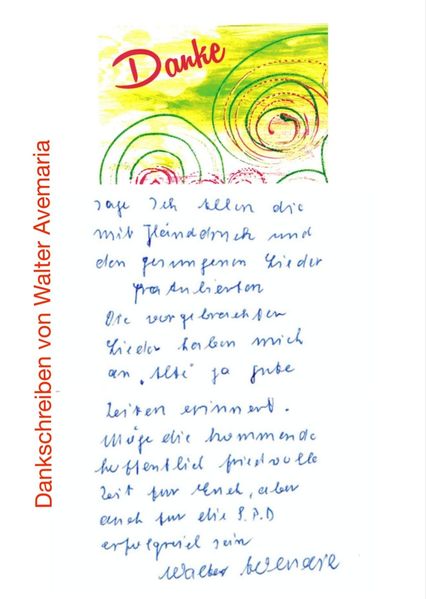 Danke
Dankschreiben von Walter Avemaria
sage Ich Allen die
mit Händedruck und
den gesungenen Lieder
gratulierten
Die vorgebrachten
Lieder haben mich
an „Alte" ja gute
Zeiten erinnert.
Möge die kommende
hoffentlich friedvolle
Zeit für Euch, aber
auch für die S.P.D
erfolgreich sein
Walter Avemaria